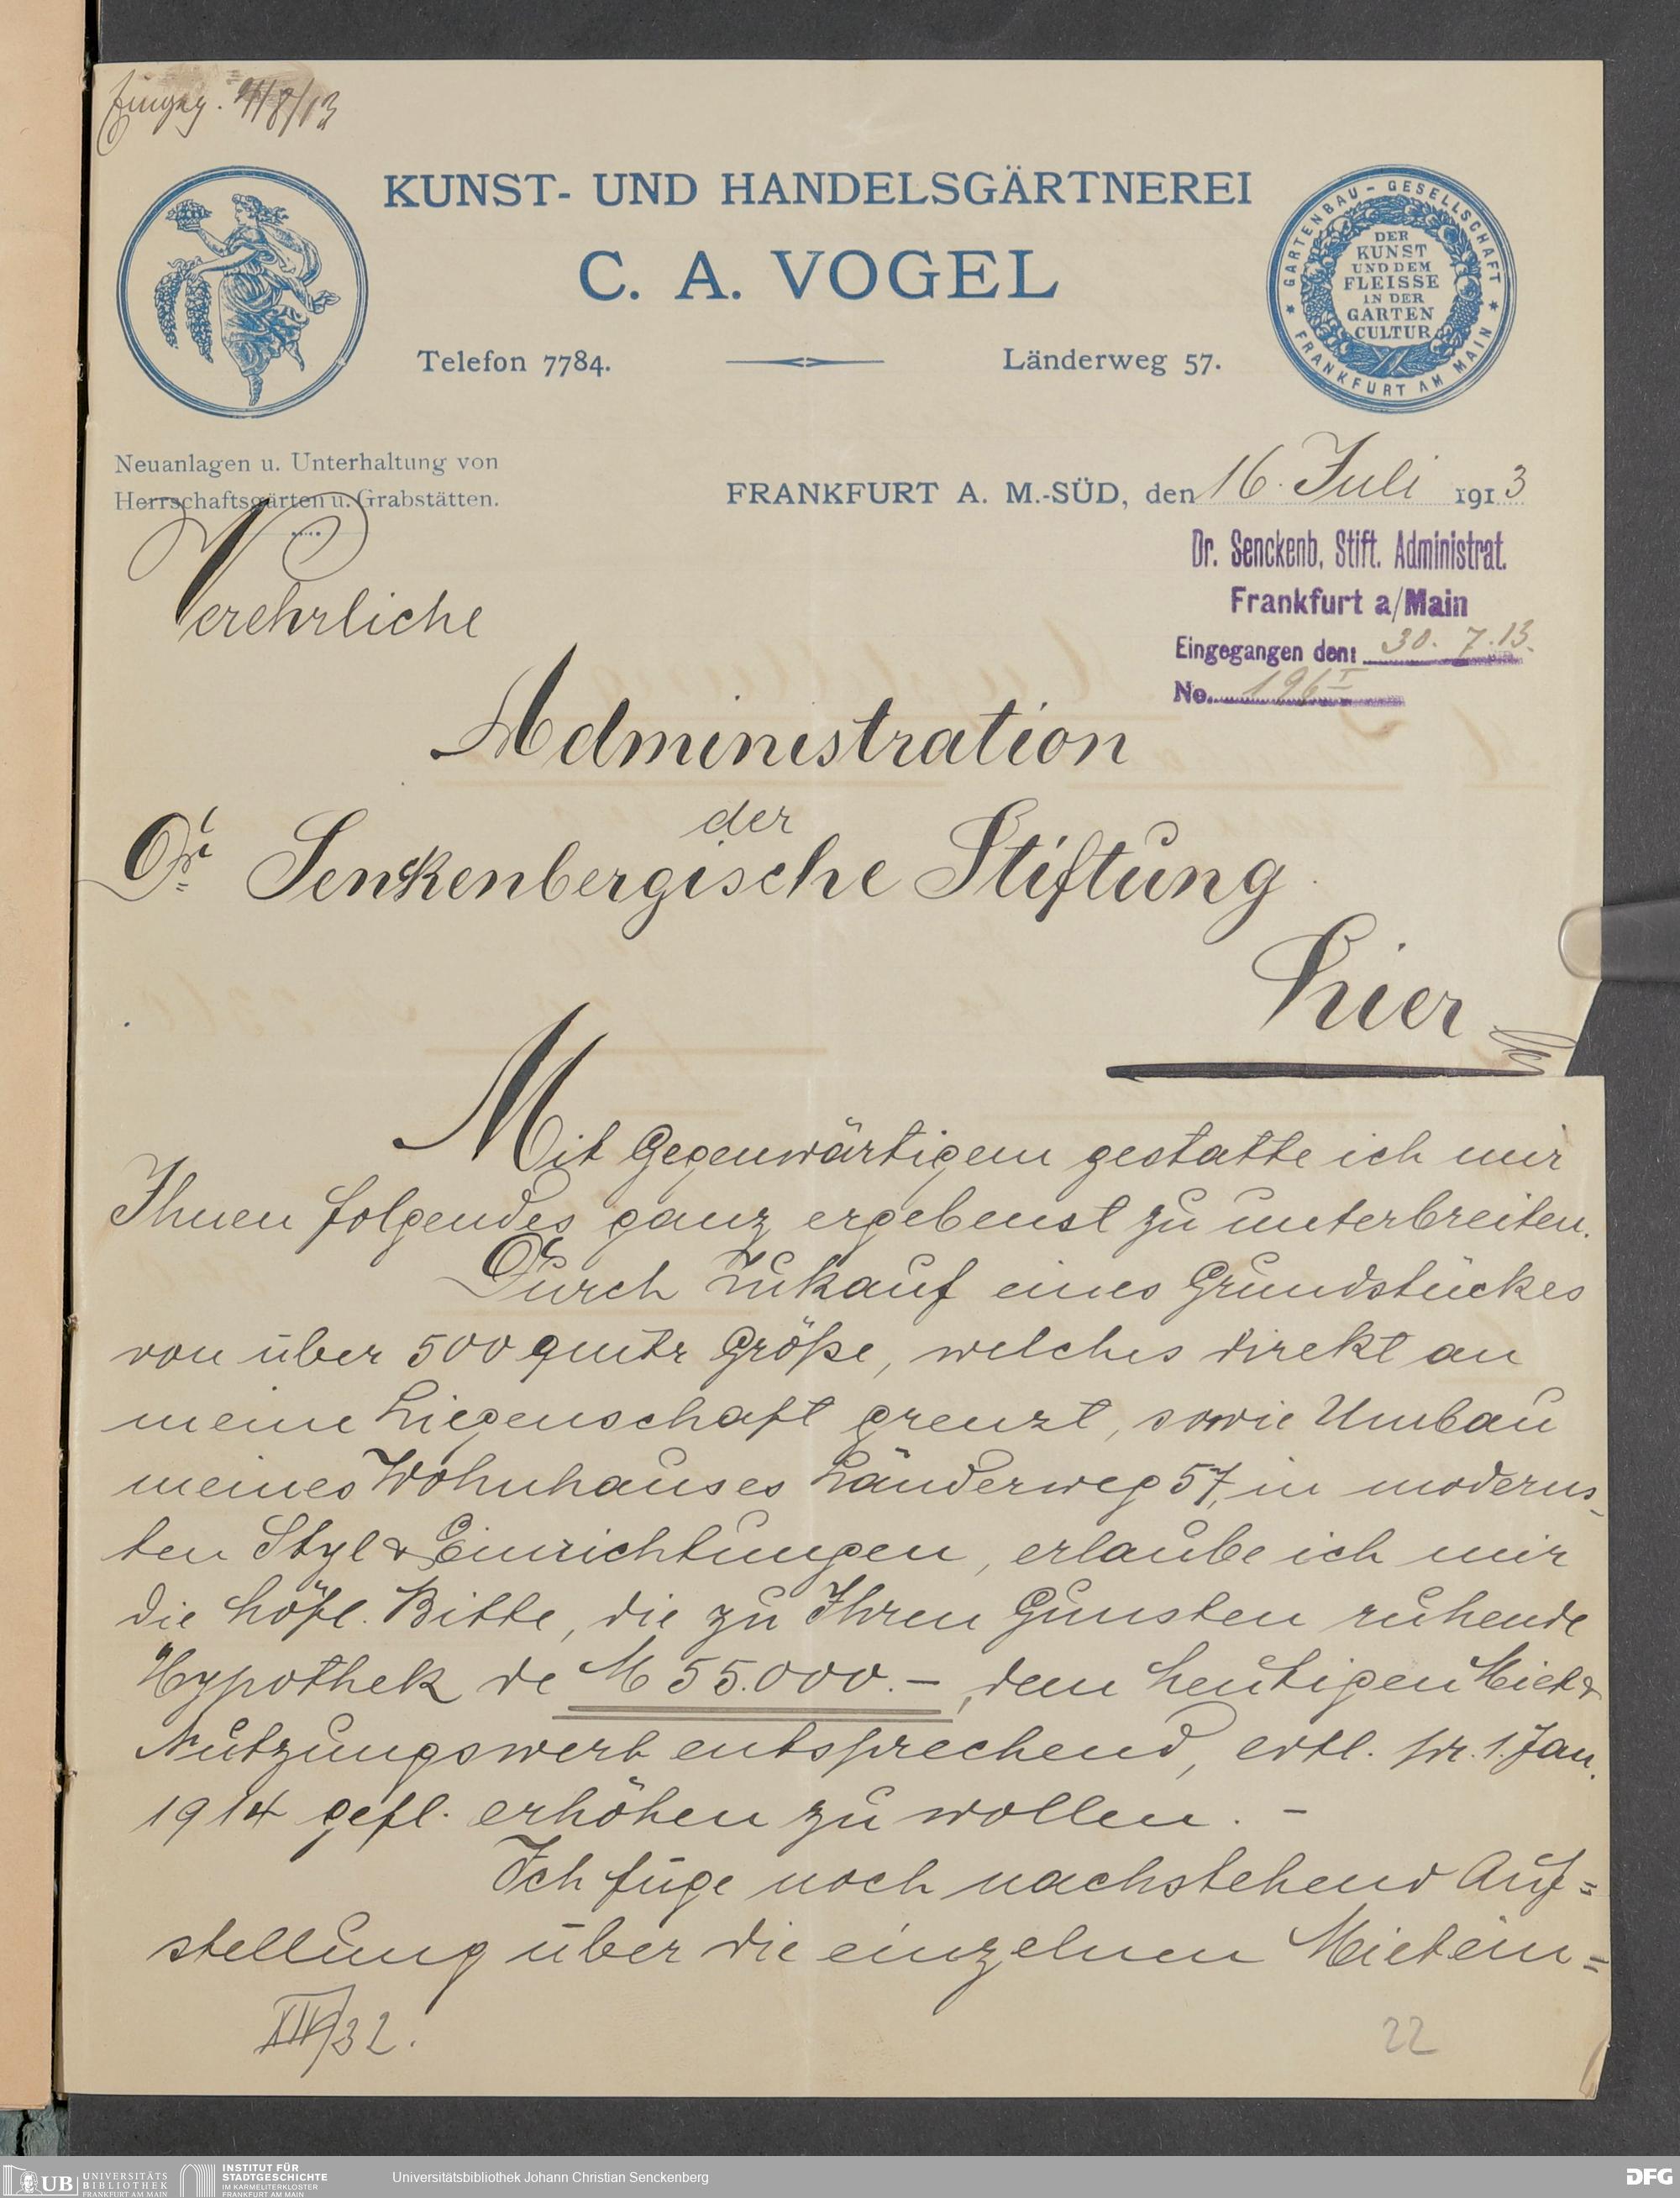 Eingeg. 4/8/13
KUNST- UND HANDELSGÄRTNEREI
C. A. VOGEL
Telefon 7784.
Länderweg 57.
GARTENBAU-GESELLSCHAFT
* FRANKFURT AM MAIN *
DER
KUNST
UND DEM
FLEISSE
IN DER
GARTEN
CULTUR
Neuanlagen u. Unterhaltung von
Herrschaftsgärten u. Grabstätten.
FRANKFURT A. M.-SÜD, den 16. Juli 1913
Dr. Senckenb. Stift. Administrat.
Frankfurt a/Main
Eingegangen den: 30. 7. 13.
No. 196 I
Verehrliche
Administration
der
Dr. Senckenbergische Stiftung
Hier
Mit Gegenwärtigem gestatte ich mir
Ihnen folgendes ganz ergebenst zu unterbreiten.
Durch Zukauf eines Grundstückes
von über 500 qmtr Größe, welches direkt an
meine Liegenschaft grenzt, sowie Umbau
meines Wohnhauses Länderweg 57, in moderns-
ten Styl & Einrichtungen, erlaube ich mir
die höfl. Bitte, die zu Ihren Gunsten ruhende
Hypothek de M 55.000.-, dem heutigen Miet &
Nutzungswert entsprechend, evtl. pr. 1. Jan.
1914 gefl. erhöhen zu wollen. -
Ich füge noch nachstehend Auf=
stellung über die einzelnen Mietein=
/32.
22
UB UNIVERSITÄTS
BIBLIOTHEK
FRANKFURT AM MAIN
INSTITUT FÜR
STADTGESCHICHTE
IM KARMELITERKLOSTER
FRANKFURT AM MAIN
Universitätsbibliothek Johann Christian Senckenberg
DFG